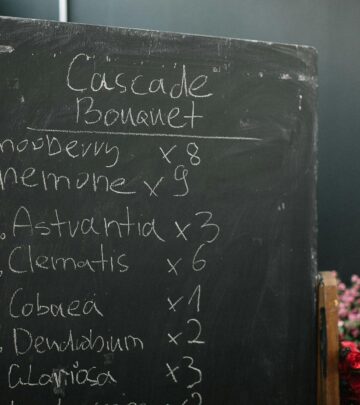 Cascade
Bouquet
nowberry x 8
nemone x 9
. Astrantia x 3
. Clematis x 6
Cobaea x 1
. Dendrobium x 2
. Gloriosa x 3